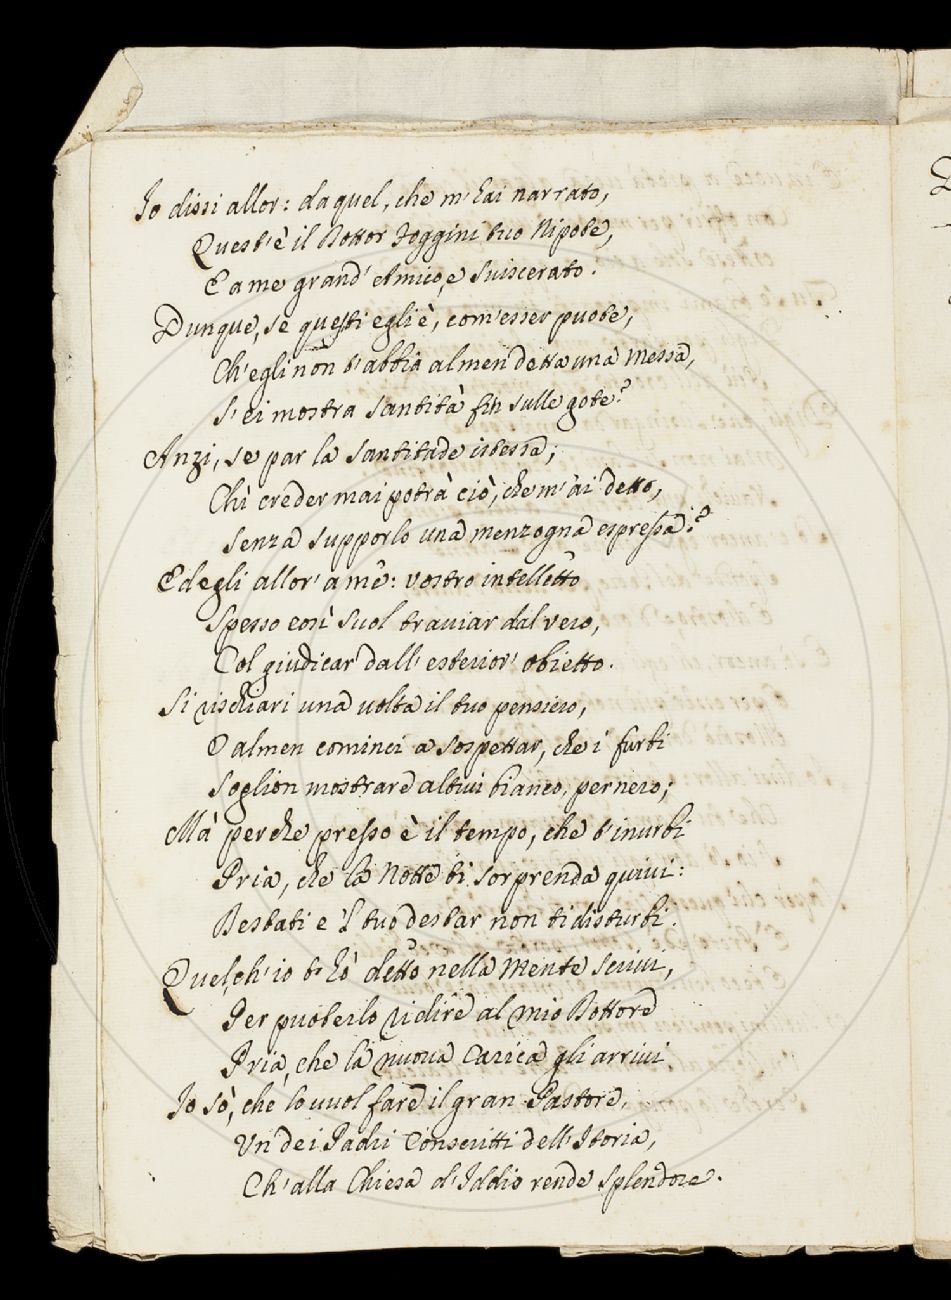 Io dissi allor: da quel, che m'hai narrato,
Quest'è il Dottor Foggini tuo Nipote,
E a me grand'Amico, e Sviscerato.
Dunque, se questi egli è, com'esser puote,
Ch'egli non t'abbia almen detta una Messa,
S'ei mostra Santità fin sulle gote?
Anzi, se par la Santitade istessa;
Chi creder mai potrà ciò, che m'ài detto,
Senza supporlo una menzogna espressa?
Ed egli allor' a me: vostro intelletto
Spesso così suol traviar dal vero,
Col giudicar dall'esterior' obietto.
Si rischiari una volta il tuo pensiero,
O almen cominci a sospettar, che i furbi
Soglion mostrare altrui bianco, per nero;
Mà perche presso è il tempo, che t'inurbi
Pria, che la Notte ti sorprenda quivi:
Restati e 'l tuo destar non ti disturbi.
Quel, ch'io t'hò detto nella Mente scrivi,
Per puoterlo ridire al mio Dottore
Pria, che la nuova Carica gli arrivi
Io sò, che lo vuol fare il gran Pastore,
Un dei Padri Conscritti dell'Istoria,
Ch'alla Chiesa d'Iddio rende Splendore.